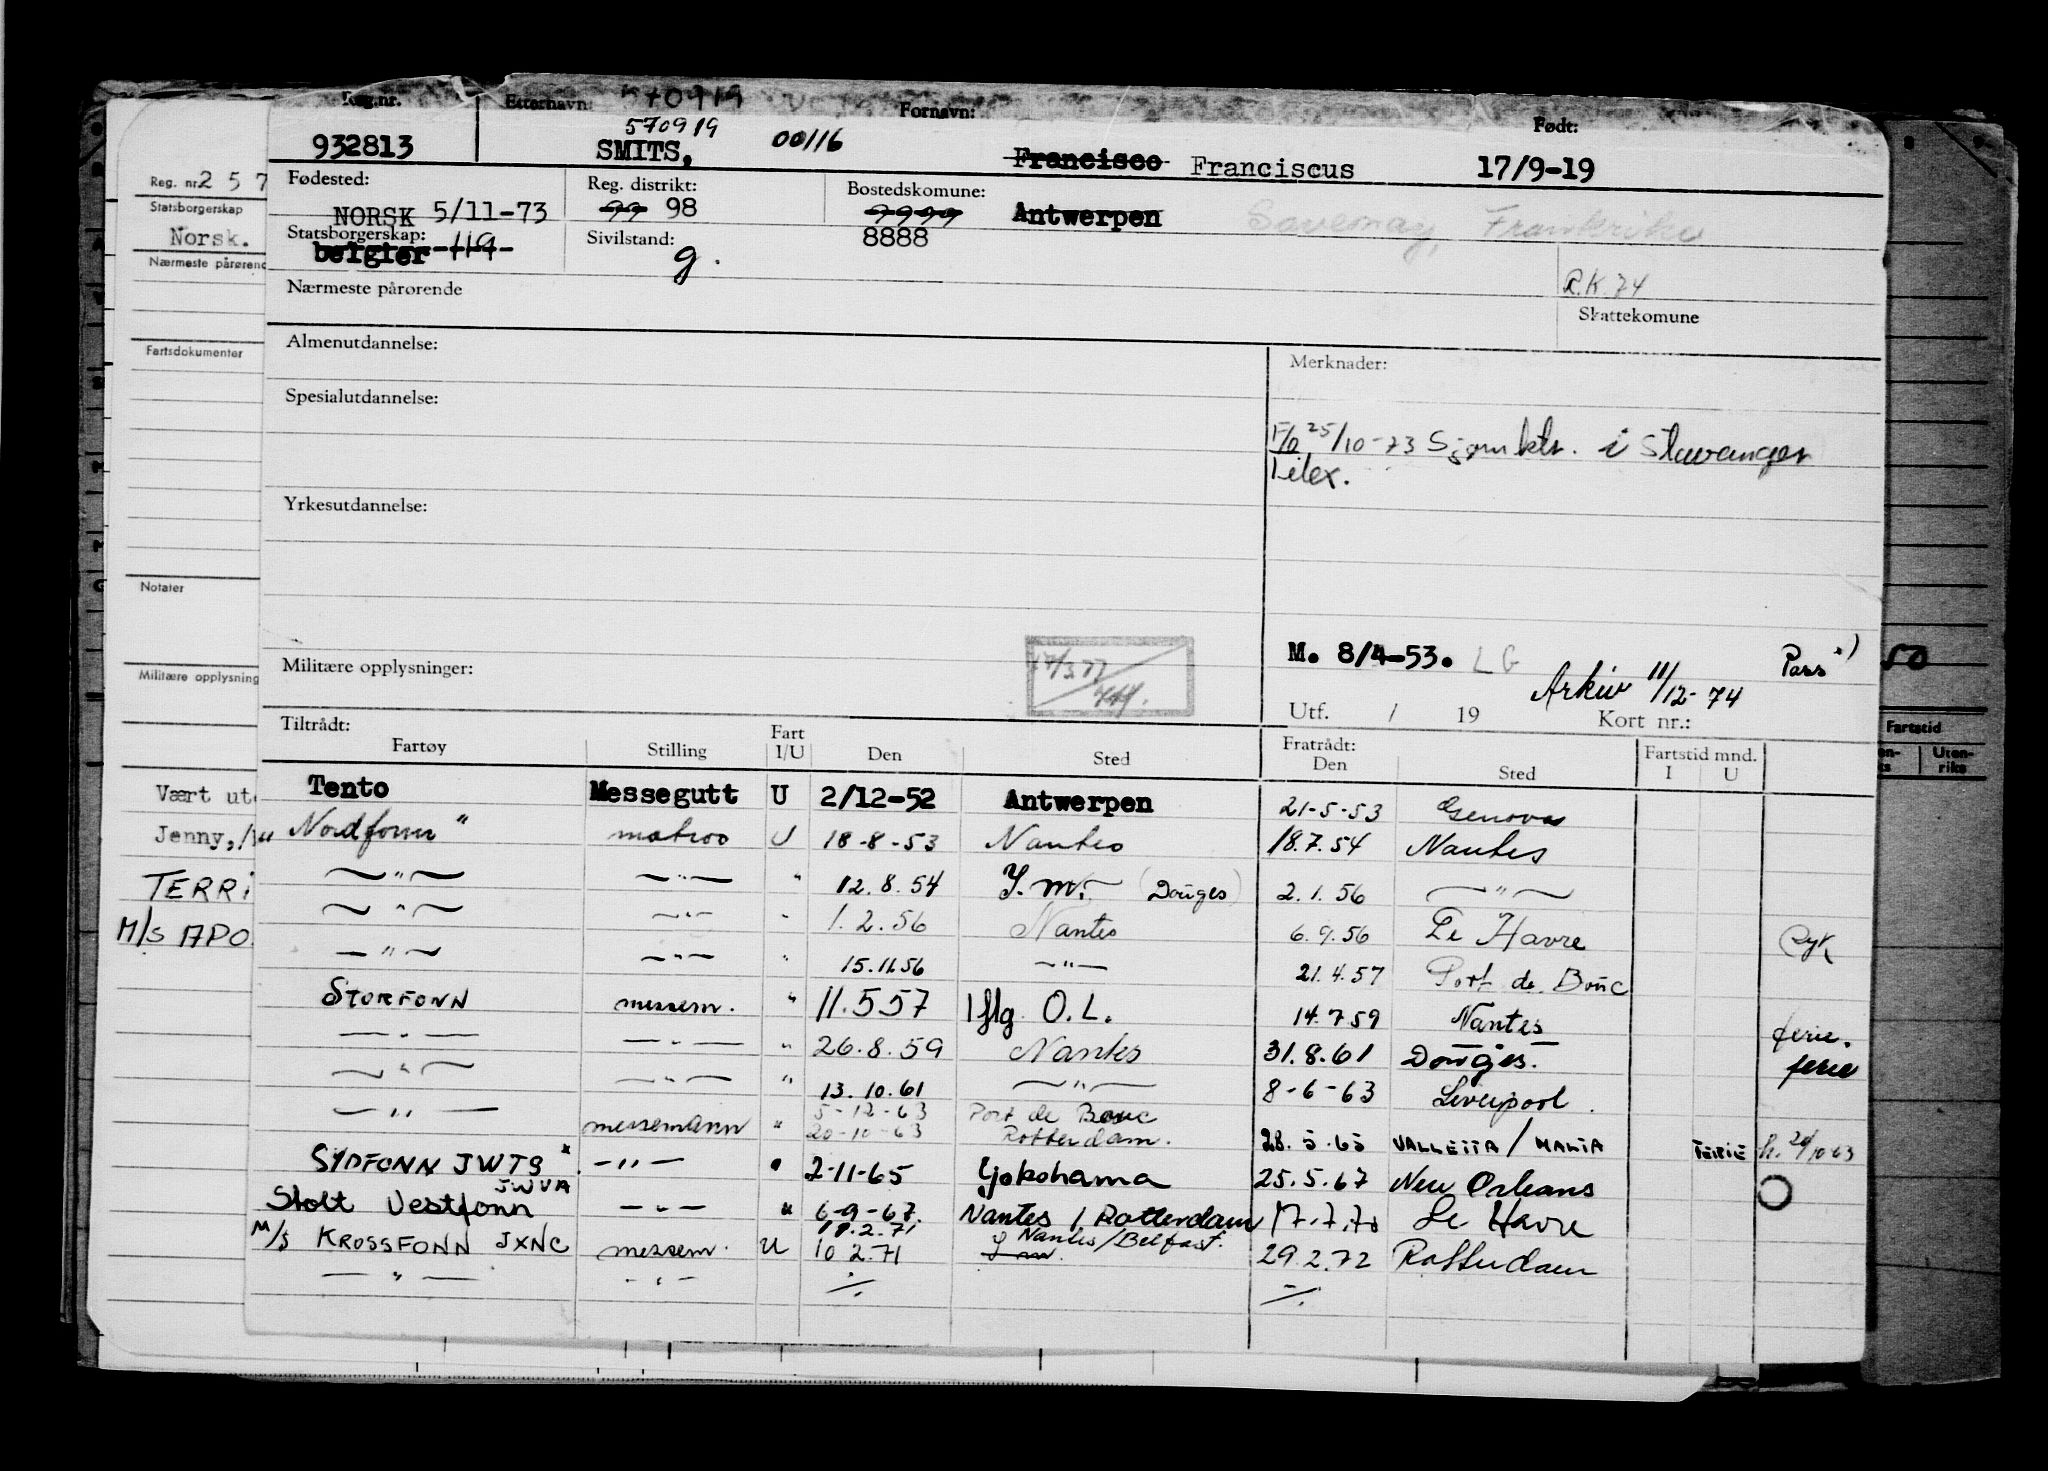 Reg.nr. Etternavn: 570919 Fornavn: Født:
932813 SMITS, 00116 Francisco Franciscus 17/9-19
Fødested: Reg. distrikt: Bostedskomune:
NORSK 5/11-73 99 98 9999 Antwerpen Savenay, Frankrike
Statsborgerskap: Sivilstand: 8888
belgier 119 g.
Nærmeste pårørende R.K. 74
Skattekomune
Almenutdannelse: Merknader:
Spesialutdannelse:
25/10-73 Sjømktr. i Stavanger
Telex.
Yrkesutdannelse:
Militære opplysninger: 17/3.77
M. 8/4-53. LG Pass
Arkiv 11/12-74
Utf. / 19 Kort nr.:
Tiltrådt: Fart Fratrådt: Fartstid mnd.
Fartøy Stilling I/U Den Sted Den Sted I U
Tento Messegutt U 2/12-52 Antwerpen 21-5-53 Genova
Nordfonn " matros U 18-8-53 Nantes 18.7.54 Nantes
—"— —"— " 12.8.54 J.m. (Donges) 2.1.56 —"—
—"— —"— " 1.2.56 Nantes 6.9.56 Le Havre syk
—"— —"— " 15.11.56 —"— 21.4.57 Port de Bouc
STORFONN messem. " 11.5 57 Iflg. O.L. 14.7 59 Nantes ferie.
—"— —"— " 26.8.59 Nantes 31.8.61 Donges. ferie
—"— —"— " 13.10.61 —"— 8-6-63 Liverpool.
—"— messemann " 5-12-63 Port de Bouc
20-10-63 Rotterdam. 28.5.65 VALLETTA / MALTA FERIE h. 20/10-63
SYDFONN JWTS x —"— " 2-11-65 Yokohama 25.5.67 New Orleans
JWVA
Stolt Vestfonn —"— " 6-9-67. Nantes / Rotterdam 17.7.70 Le Havre
18.2.71 Nantes/Belfast.
M/S KROSSFONN JXNC messem. U 10 2.71 J m. 29.2.72 Rotterdam
—"— —"— -/. -/.
Reg. nr. 2 5 7
Statsborgerskap
Norsk.
Nærmeste pårørend
Fartsdokumenter
Notater
Militære opplysning
Vært ut
Jenny,
TERRI
M/S APO
50
Fartstid
Uten-
riks